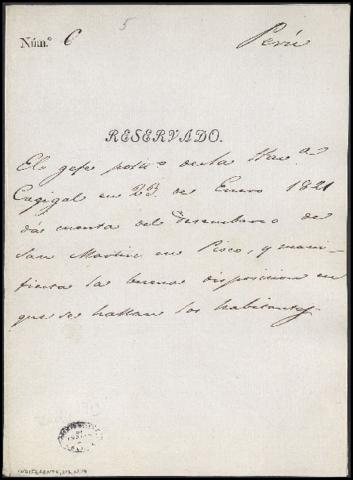 5
Núm.º 6
Perú
RESERVADO.
El gefe polit.º de la Hav.ª
Cagigal en 23 de Enero 1821
dá cuenta del desembarco de
San Martin en Pisco, y mani-
fiesta la buena disposicion en
que se hallan los habitantes
INDIFERENTE, 313, N.